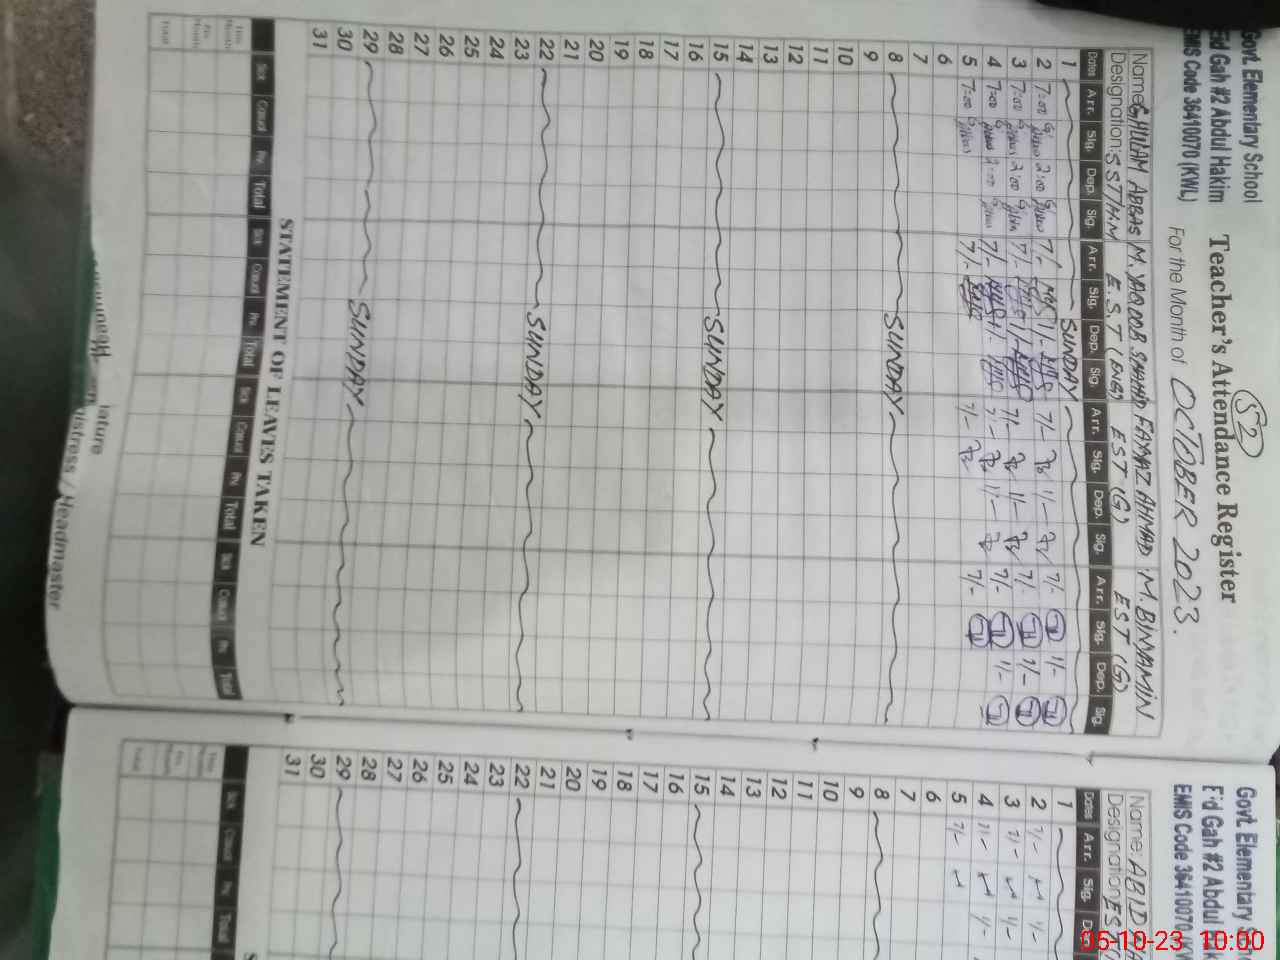 Govt. Elementary School
Eid Gah #2 Abdul Hakim
EMIS Code 36410070 (KWL)
52
Teacher's Attendance Register
For the Month of OCTOBER 2023.
Name: GHULAM ABBAS M. YAQOOB SHAHID FAYYAZ AHMAD M. BINYAMIN
Designation: SST/H.M E.S.T (Eng) EST (G) EST (G)
Dates Arr. Sig. Dep. Sig. Arr. Sig. Dep. Sig. Arr. Sig. Dep. Sig. Arr. Sig. Dep. Sig.
1 SUNDAY
2 7:00 2:00 7/- 1/- 7/- 1/- 7/- 1/-
3 7:00 2:00 7/- 1/- 7/- 1/- 7/- 1/-
4 7:00 2:00 7/- 1/- 7/- 1/- 7/- 1/-
5 7:00 7/- 7/- 7/-
6
7
8 SUNDAY
9
10
11
12
13
14
15 SUNDAY
16
17
18
19
20
21
22 SUNDAY
23
24
25
26
27
28
29 SUNDAY
30
31
STATEMENT OF LEAVES TAKEN
Sick Casual Prv. Total Sick Casual Prv. Total Sick Casual Prv. Total Sick Casual Prv. Total
This Month
Prv. Month
Total
istress / Headmaster
Govt. Elementary
Eid Gah #2 Abdul
EMIS Code 36410070
Name: ABID
Designation: EST
Dates Arr. Sig.
1
2 7/- 1/-
3 7/- 1/-
4 7/- 1/-
5 7/-
6
7
8
9
10
11
12
13
14
15
16
17
18
19
20
21
22
23
24
25
26
27
28
29
30
31
Sick Casual Prv. Total
Total
05-10-23 10:00